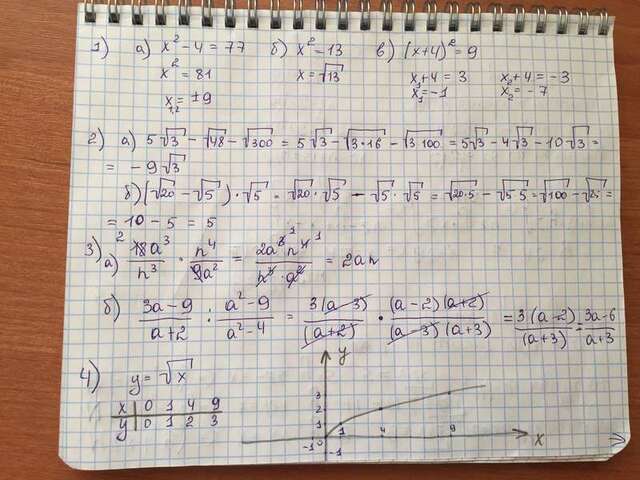 1) а) x²-4=77 б) x²=13 в) (x+4)²=9
x²=81 x=√13 x₁+4=3 x₂+4=-3
x₁,₂=±9 x₁=-1 x₂=-7
2) а) 5√3 - √48 - √300 = 5√3 - √3·16 - √3·100 = 5√3 - 4√3 - 10√3 =
= -9√3
б) (√20 - √5)·√5 = √20·√5 - √5·√5 = √20·5 - √5·5 = √100 - √25 =
= 10 - 5 = 5
3) а) 18a³/n³ · n⁴/9a² = 2a³n⁴/n³·a² = 2an
б) 3a-9/a+2 : a²-9/a²-4 = 3(a-3)/(a+2) · (a-2)(a+2)/(a-3)(a+3) = 3(a+2)/(a+3) = 3a-6/a+3
4) y=√x
x 0 1 4 9
y 0 1 2 3
y
3
2
1
-1 0 1 4 9 x
-1